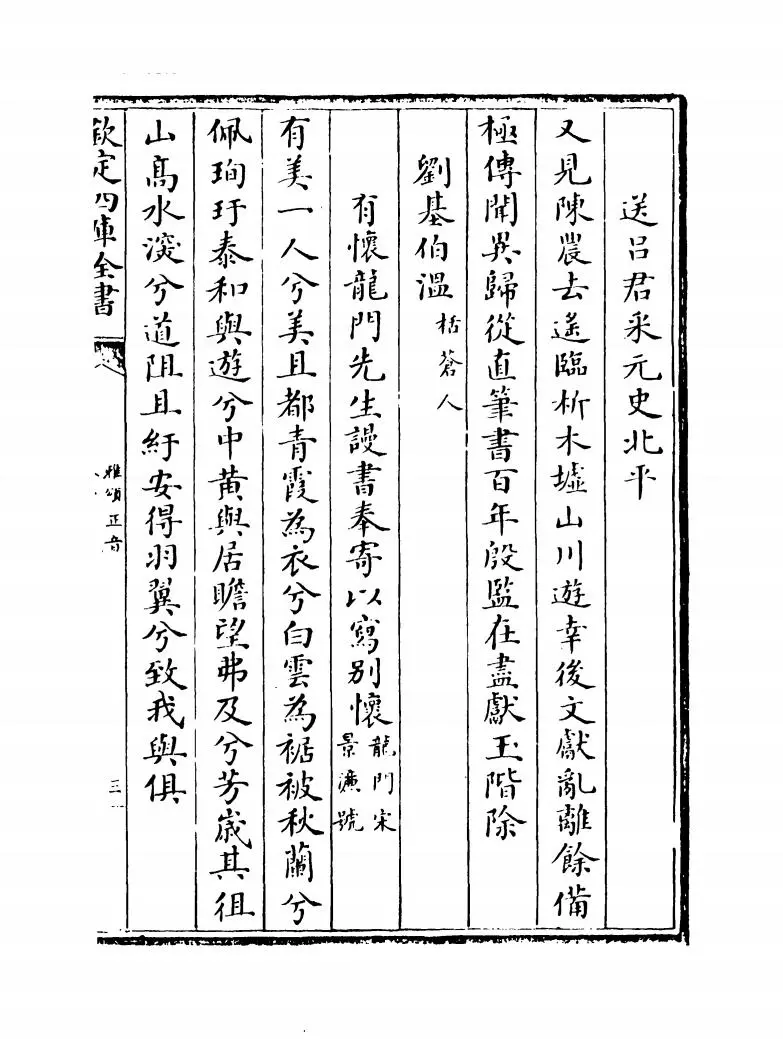 送吕君采元史北平
又見陳農去遙臨析木墟山川遊幸後文獻亂離餘備
極傳聞異歸從直筆書百年殷監在盡獻玉階除
劉基伯溫括蒼人
有懷龍門先生謾書奉寄以寫別懷龍門宋景濂號
有美一人兮美且都青霞為衣兮白雲為裾被秋蘭兮
佩珣玗泰和與遊兮中黄與居瞻望弗及兮芳歲其徂
山髙水深兮道阻且紆安得羽翼兮致我與俱
欽定四庫全書
雅頌正音
三